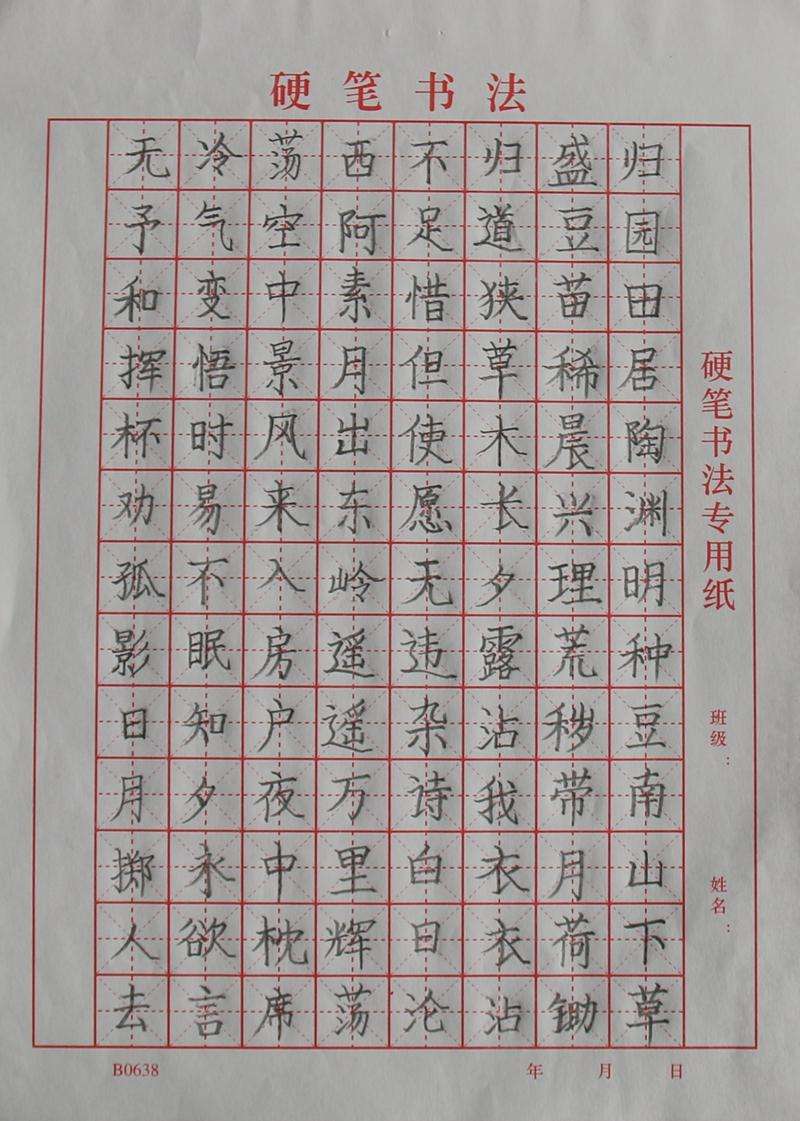 硬笔书法
归园田居陶渊明种豆南山下草
盛豆苗稀晨兴理荒秽带月荷锄
归道狭草木长夕露沾我衣衣沾
不足惜但使愿无违杂诗白日沦
西阿素月出东岭遥遥万里辉荡
荡空中景风来入房户夜中枕席
冷气变悟时易不眠知夕永欲言
无予和挥杯劝孤影日月掷人去
硬笔书法专用纸
班级：
姓名：
B0638
年 月 日